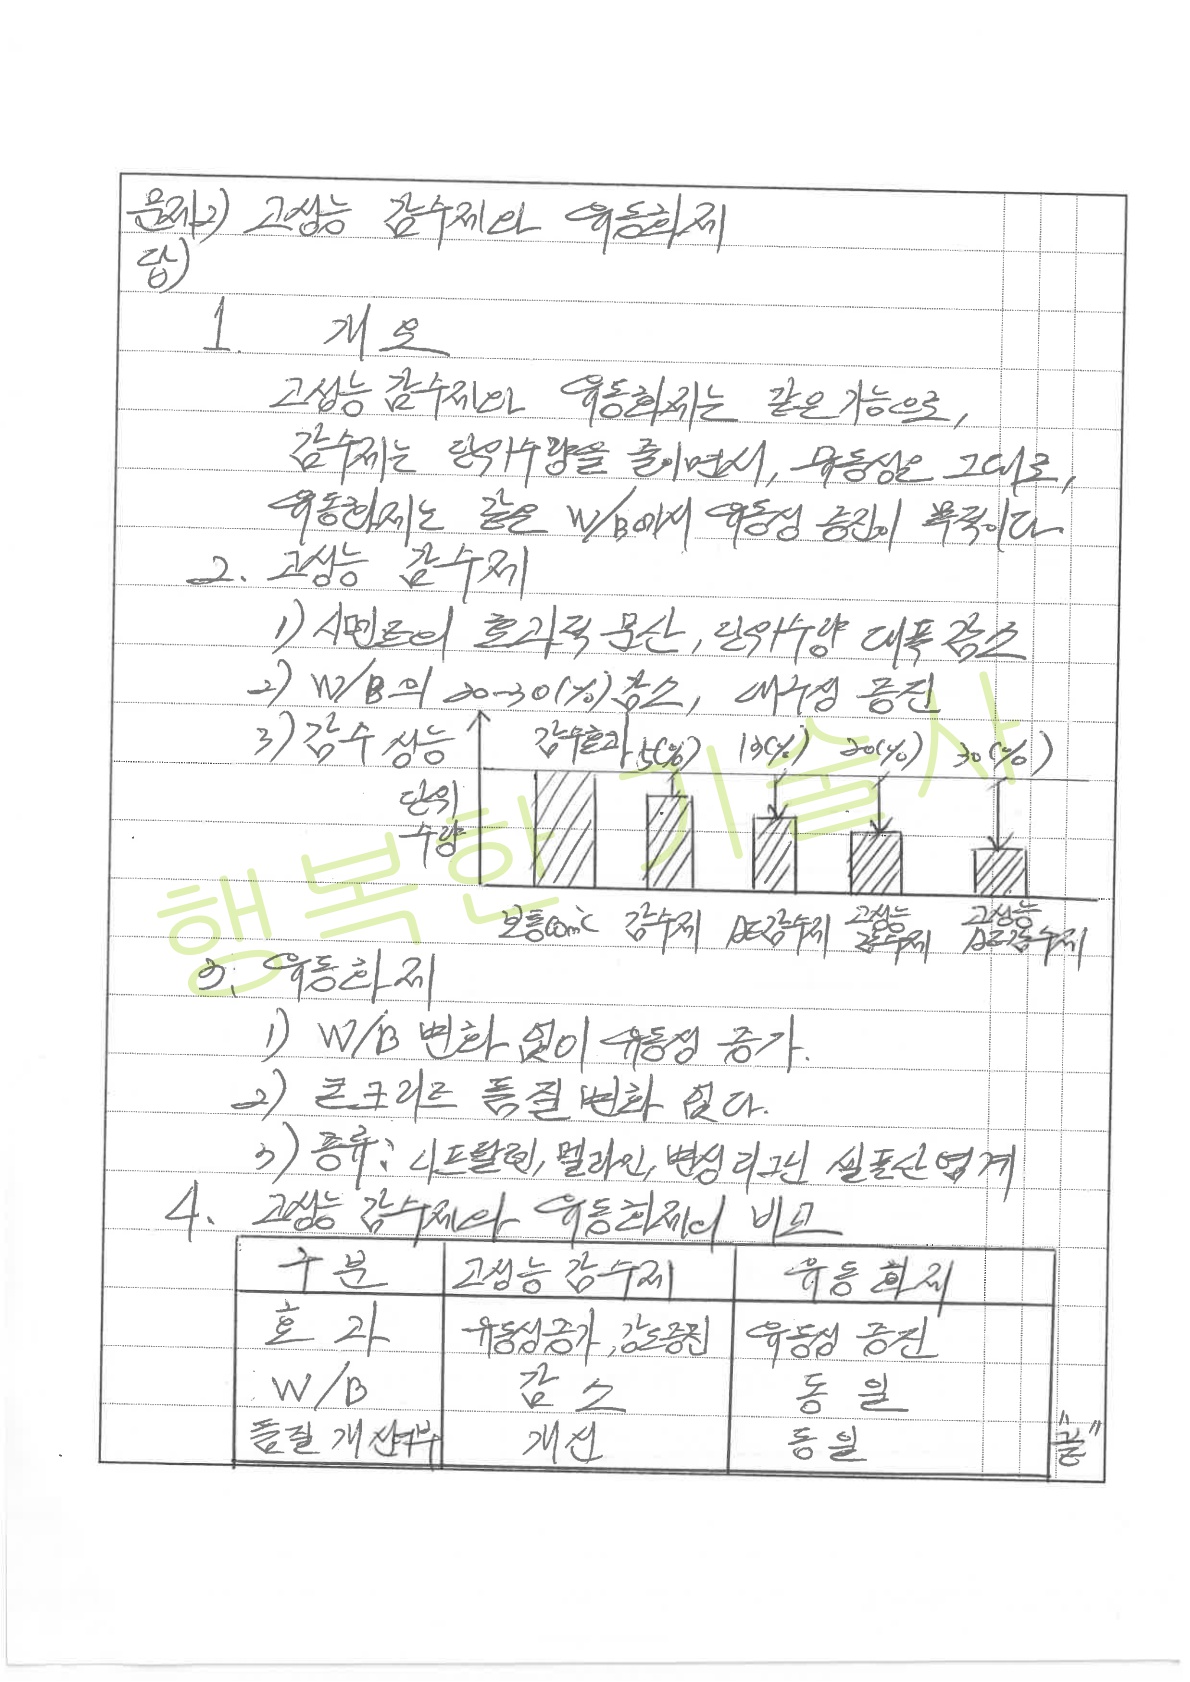 문제2) 고성능 감수제와 유동화제
답)
1. 개요
고성능 감수제와 유동화제는 같은 기능으로,
감수제는 단위수량을 줄이면서, 유동성은 그대로,
유동화제는 같은 W/B에서 유동성 증진이 목적이다.
2. 고성능 감수제
1) 시멘트의 효과적 분산, 단위수량 대폭 감소
2) W/B의 20-30(%)감소, 내구성 증진
3) 감수성능
감수효과 5(%) 13(%) 20(%) 30(%)
단위
수량
보통con'c 감수제 AE감수제 고성능 감수제 고성능 AE감수제
3. 유동화제
1) W/B 변화 없이 유동성 증가.
2) 콘크리트 품질 변화 없다.
3) 종류: 나프탈렌, 멜라민, 변성 리그닌 설폰산염계
4. 고성능 감수제와 유동화제의 비교
구분 고성능 감수제 유동화제
효과 유동성증가, 강도증진 유동성 증진
W/B 감소 동일
품질 개선여부 개선 동일
"끝"
행복한 기술사